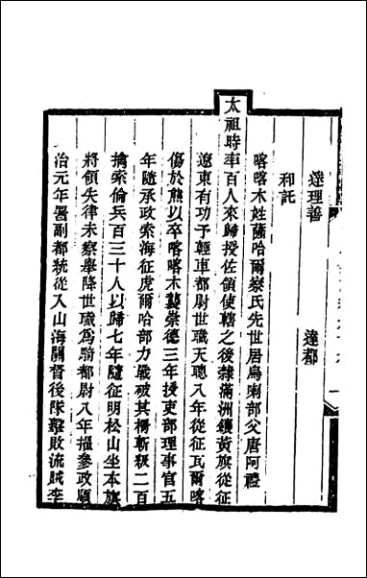 達理善　達都
和託
喀喀木姓薩哈爾察氏先世居烏喇部父唐阿禮
太祖時率百人來歸授佐領使轄之後隸滿洲鑲黃旗從征
遼東有功予輕車都尉世職天聰八年從征瓦爾喀
傷於熊以卒喀喀木襲崇德三年授吏部理事官五
年隨承政索海征虎爾哈部力戰破其柵斬級二百
擒索倫兵百三十人以歸七年隨征明松山坐本旗
將領失律未察舉降世職爲騎都尉八年擢參政順
治元年署副都統從入山海關督後隊擊敗流賊李